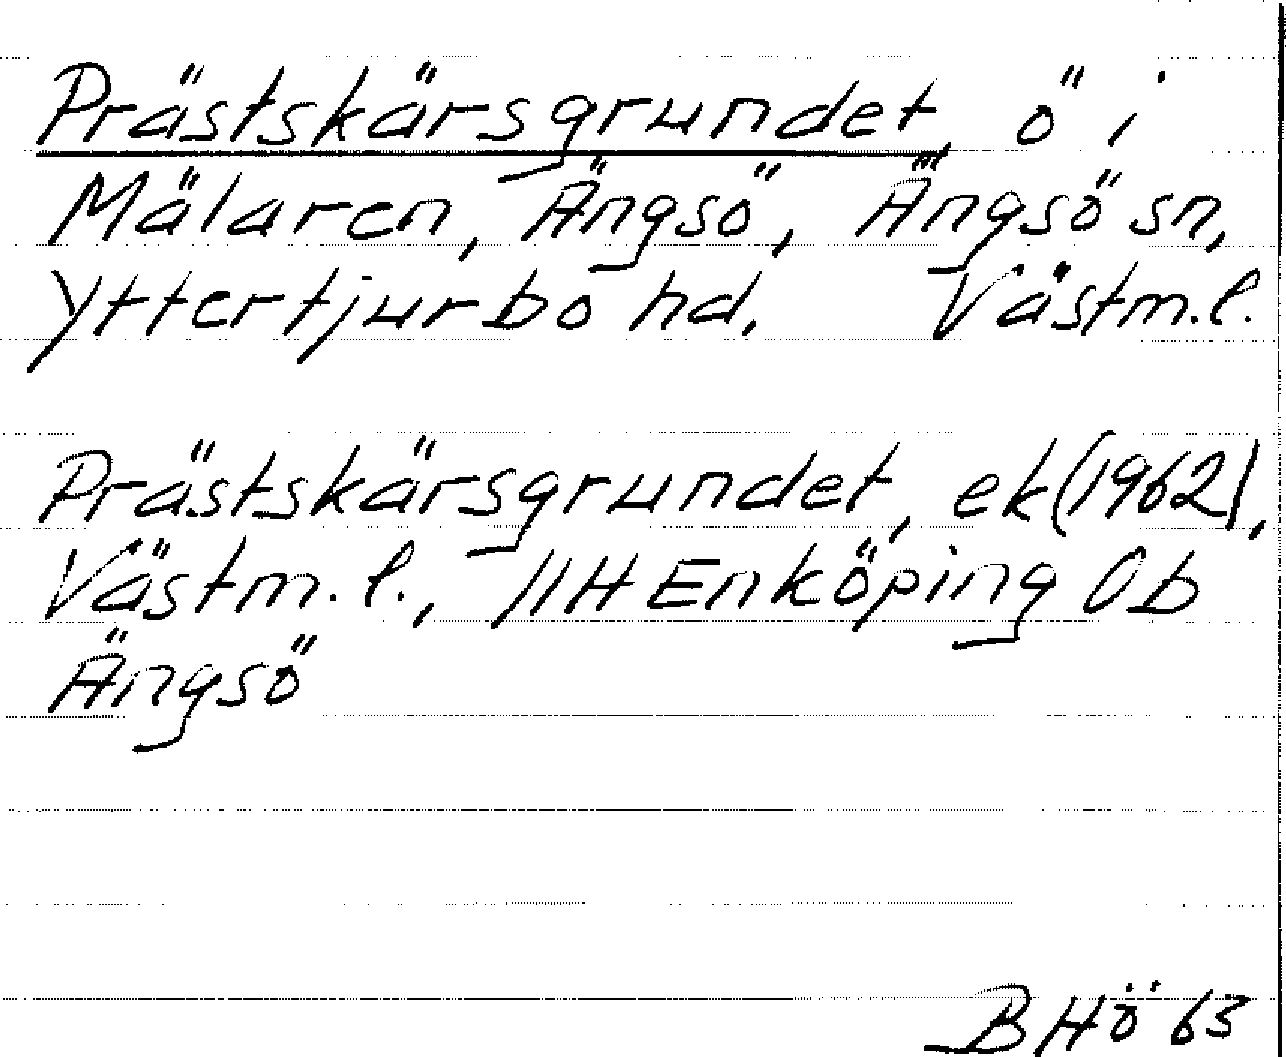 Prästskärsgrundet, ö i
Mälaren, Ängsö, Ängsö sn,
Yttertjurbo hd. Västm.l.
Prästskärsgrundet, ek (1962),
Västm.l., 11H Enköping 0b
Ängsö
B Hö 63